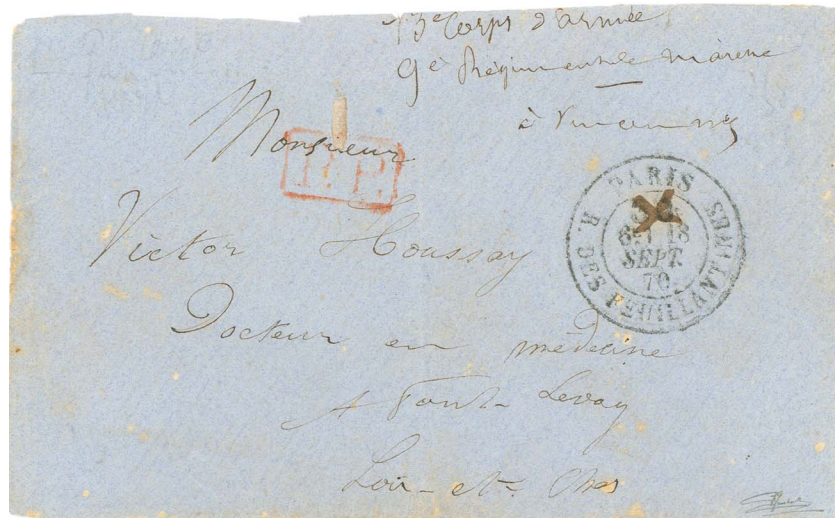 13e Corps d'armée
9e Régiment de marche
à Vincennes
Monsieur
P.P.
PARIS
R. DES FEUILLANTINES
6E/ 18
SEPT.
70
Victor Houssay
Docteur en médecine
A Pont-Levoy
Loir-et-Cher